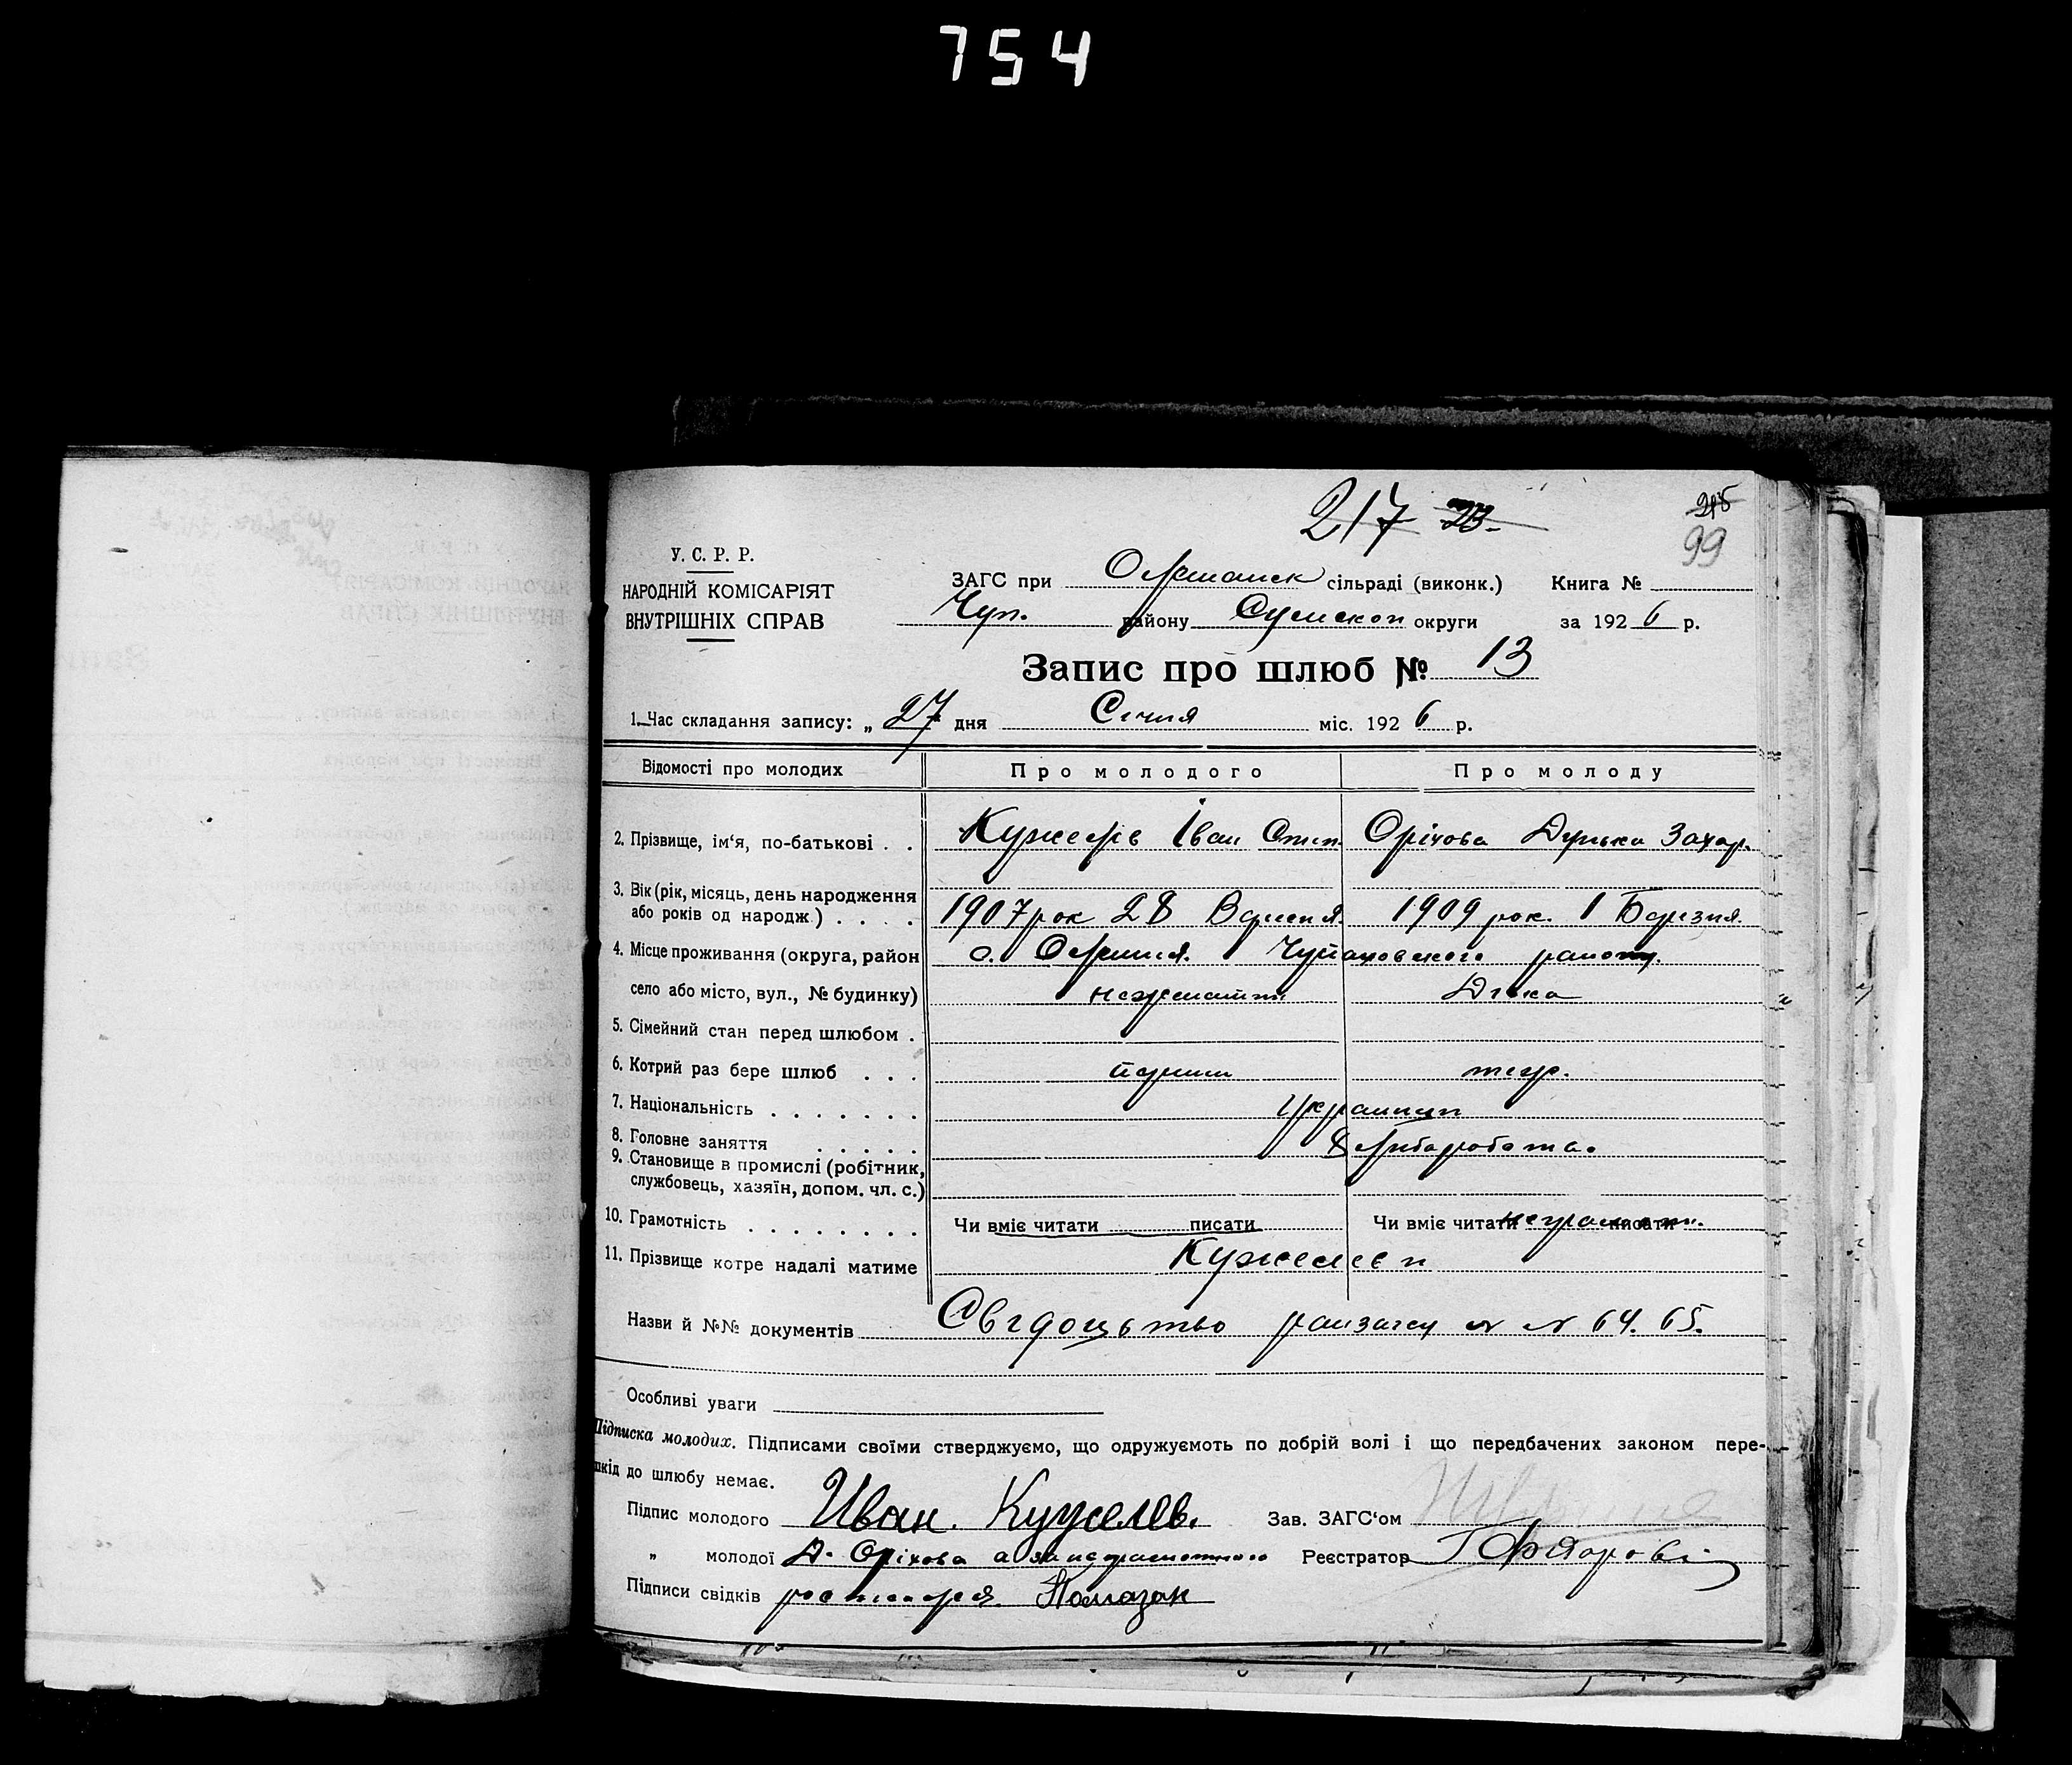 754
217 23.
215
99
У. С. Р. Р.
НАРОДНІЙ КОМІСАРІЯТ
ВНУТРІШНІХ СПРАВ
ЗАГС при Олешанск сільраді (виконк.) Книга №
Чуп. району Сумской округи за 1926 р.
Запис про шлюб № 13
1. Час складання запису: „ 27 дня Січня міс. 1926 р.
Відомості про молодих Про молодого Про молоду
2. Прізвище, ім‘я, по-батькові . . Кужелєв Іван Степ. Оріхова Дунька Захар.
3. Вік (рік, місяць, день народження
або років од народж.) . . . . 1907 рок 28 Вересня. 1909 рок. 1 Березня.
4. Місце проживання (округа, район с. Олешня. Чупаховского района.
село або місто, вул., № будинку) нежонатий Дівка
5. Сімейний стан перед шлюбом .
6. Котрий раз бере шлюб . . . перший
7. Національність . . . . . . . Українци
8. Головне заняття . . . . . Хліборобство
9. Становище в промислі (робітник,
службовець, хазяїн, допом. чл. с.)
10. Грамотність . . . . . . . . Чи вміє читати писати Чи вміє читати неграмотн. писати
11. Прізвище котре надалі матиме Кужелєви
Назви й №№ документів Свідоцьтво райзагсу № № 64. 65.
Особливі уваги
Підписка молодих. Підписами своїми стверджуємо, що одружуємоть по добрій волі і що передбачених законом пере-
шкід до шлюбу немає.
Підпис молодого Иван. Кужелев. Зав. ЗАГС‘ом
„ молодої Д. Оріхова а за неграмотного Реєстратор
Підписи свідків росписался Помазан